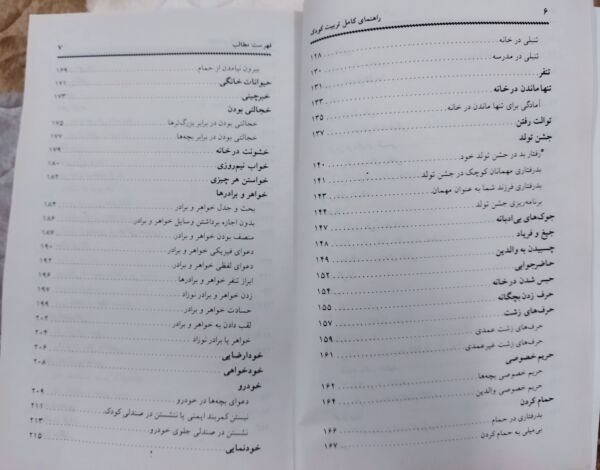 ۶ راهنمای کامل تربیت کودک
تنبلی در خانه ۱۲۸
تنبلی در مدرسه ۱۳۰
تنفر ۱۳۱
تنها ماندن در خانه ۱۳۳
آمادگی برای تنها ماندن در خانه ۱۳۵
توالت رفتن ۱۳۷
جشن تولد
رفتار بد در جشن تولد خود ۱۴۰
بدرفتاری مهمانان کوچک در جشن تولد ۱۴۱
بدرفتاری فرزند شما به عنوان مهمان ۱۴۳
برنامه‌ریزی جشن تولد ۱۴۴
جوک‌های بی‌ادبانه ۱۴۶
جیغ و فریاد ۱۴۸
چسبیدن به والدین ۱۴۹
حاضرجوابی ۱۵۲
حبس شدن در خانه ۱۵۴
حرف زدن بچگانه ۱۵۵
حرف‌های زشت ۱۵۷
حرف‌های زشت عمدی ۱۵۹
حرف‌های زشت غیرعمدی ۱۶۱
حریم خصوصی
حریم خصوصی بچه‌ها ۱۶۲
حریم خصوصی والدین ۱۶۴
حمام کردن
بدرفتاری در حمام ۱۶۶
بی‌میلی به حمام کردن ۱۶۷
فهرست مطالب ۷
بیرون نیامدن از حمام ۱۶۹
حیوانات خانگی ۱۷۱
خبرچینی ۱۷۳
خجالتی بودن
خجالتی بودن در برابر بزرگ‌ترها ۱۷۵
خجالتی بودن در برابر بچه‌ها ۱۷۷
خشونت در خانه ۱۷۹
خواب نیم‌روزی ۱۸۰
خواستن هر چیزی ۱۸۲
خواهر و برادرها
بحث و جدل خواهر و برادر ۱۸۴
بدون اجازه برداشتن وسایل خواهر و برادر ۱۸۶
منصف بودن خواهر و برادر ۱۸۷
دعوای فیزیکی خواهر و برادر ۱۹۰
دعوای لفظی خواهر و برادر ۱۹۲
ابراز تنفر خواهر و برادرها ۱۹۵
زدن خواهر و برادر نوزاد ۱۹۷
حسادت خواهر و برادر ۱۹۹
لقب دادن به خواهر و برادر ۲۰۲
خواهر یا برادر نوزاد ۲۰۴
خودارضایی ۲۰۶
خودخواهی ۲۰۸
خودرو
دعوای بچه‌ها در خودرو ۲۰۹
نبستن کمربند ایمنی یا ننشستن در صندلی کودک ۲۱۱
نشستن در صندلی جلوی خودرو ۲۱۳
خودنمایی ۲۱۵